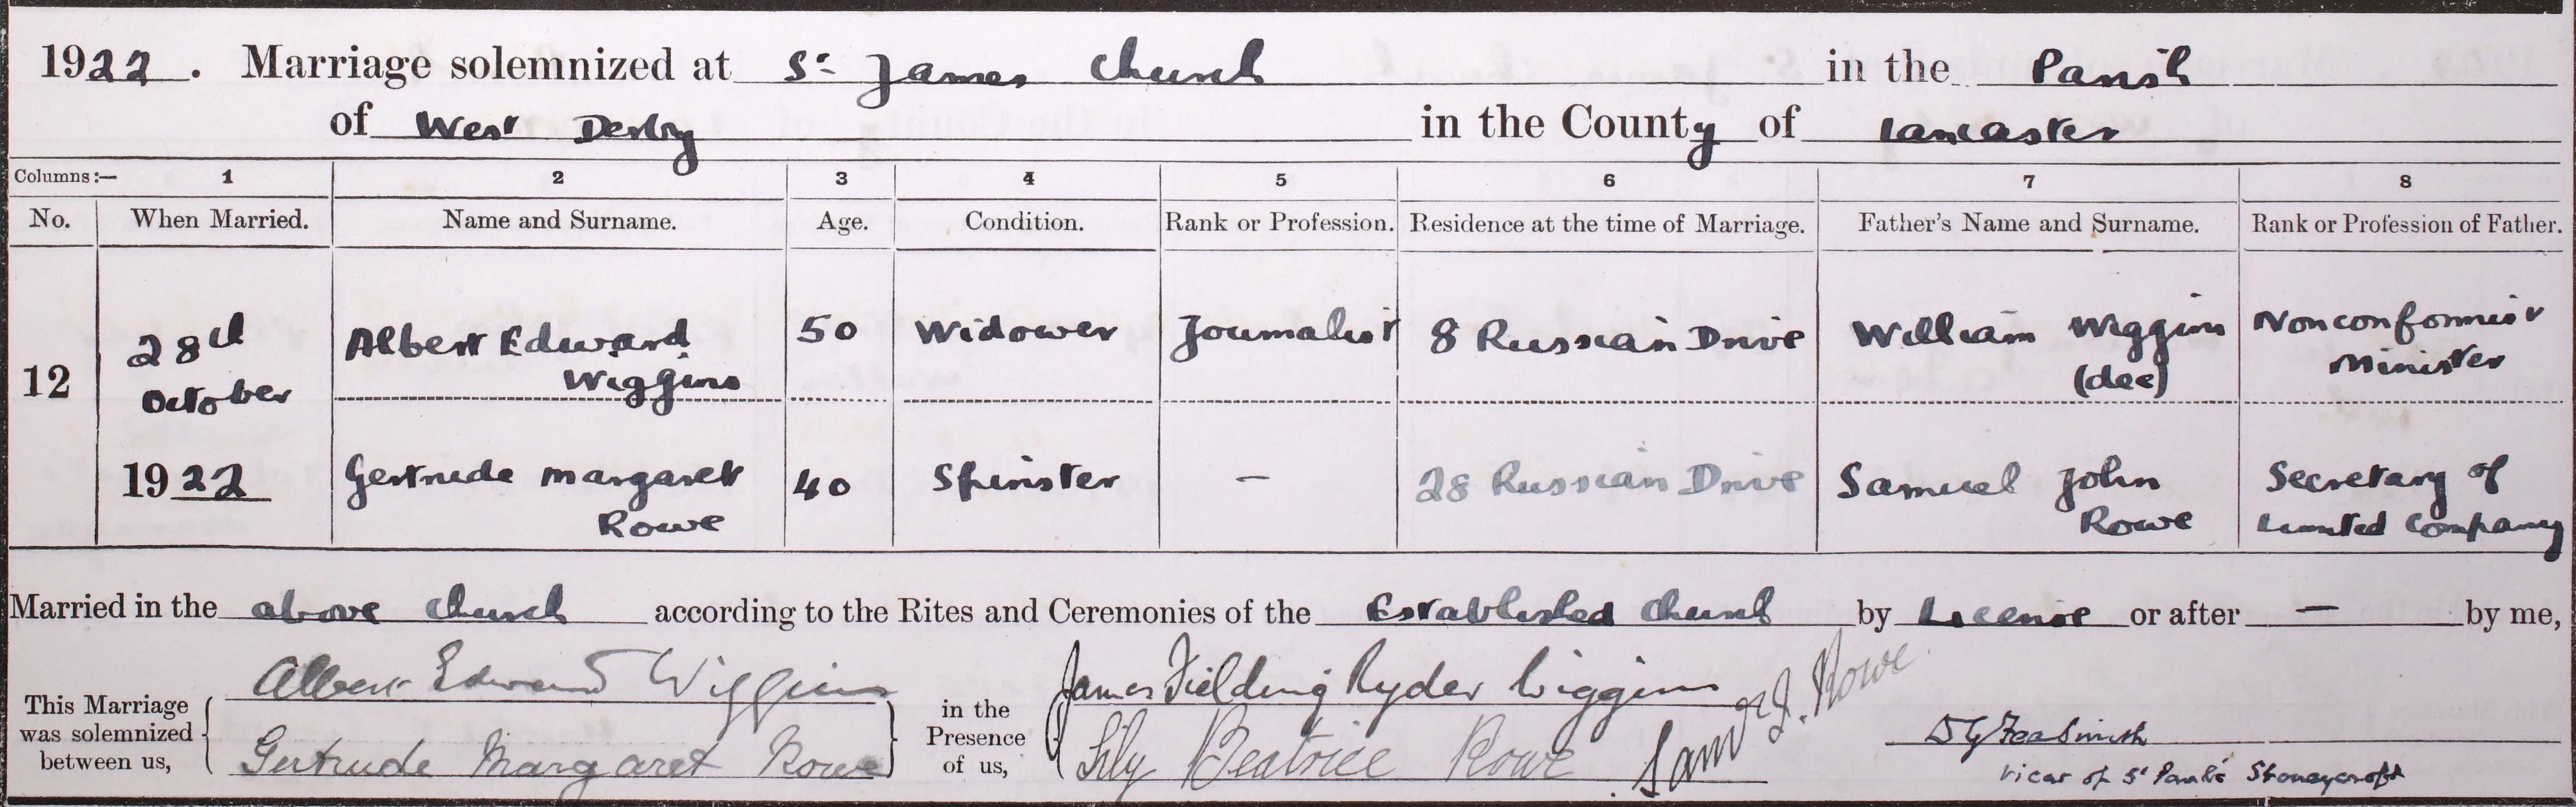 1922. Marriage solemnized at St James Church in the Parish
of West Derby in the County of Lancaster
Columns:— 1 2 3 4 5 6 7 8
No. When Married. Name and Surname. Age. Condition. Rank or Profession. Residence at the time of Marriage. Father's Name and Surname. Rank or Profession of Father.
12 28th October 1922
Albert Edward Wiggins 50 Widower Journalist 8 Russian Drive William Wiggins (dec) Nonconformist Minister
Gertrude Margaret Rowe 40 Spinster — 28 Russian Drive Samuel John Rowe Secretary of Limited Company
Married in the above Church according to the Rites and Ceremonies of the Established Church by License or after — by me,
This Marriage was solemnized between us,
Albert Edward Wiggins
Gertrude Margaret Rowe
in the Presence of us,
James Fielding Ryder Wiggins
Lily Beatrice Rowe
Saml J. Rowe
Vicar of St Paul's Stoneycroft